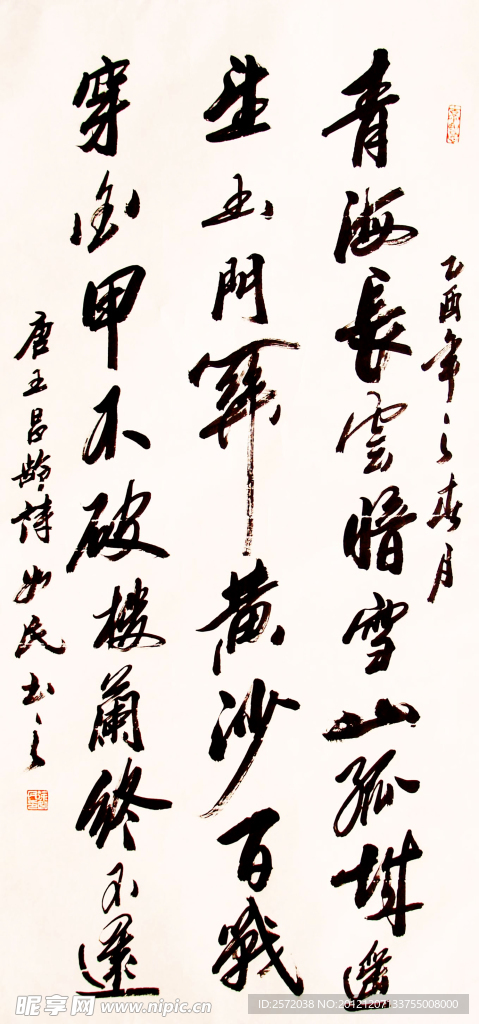 乙酉年之春月
青海長雲暗雪山孤城遥
望玉門關黄沙百戰
穿金甲不破樓蘭終不還
唐王昌齡詩民书之
昵享网 www.nipic.cn
ID:2572038 NO:20121207133755008000